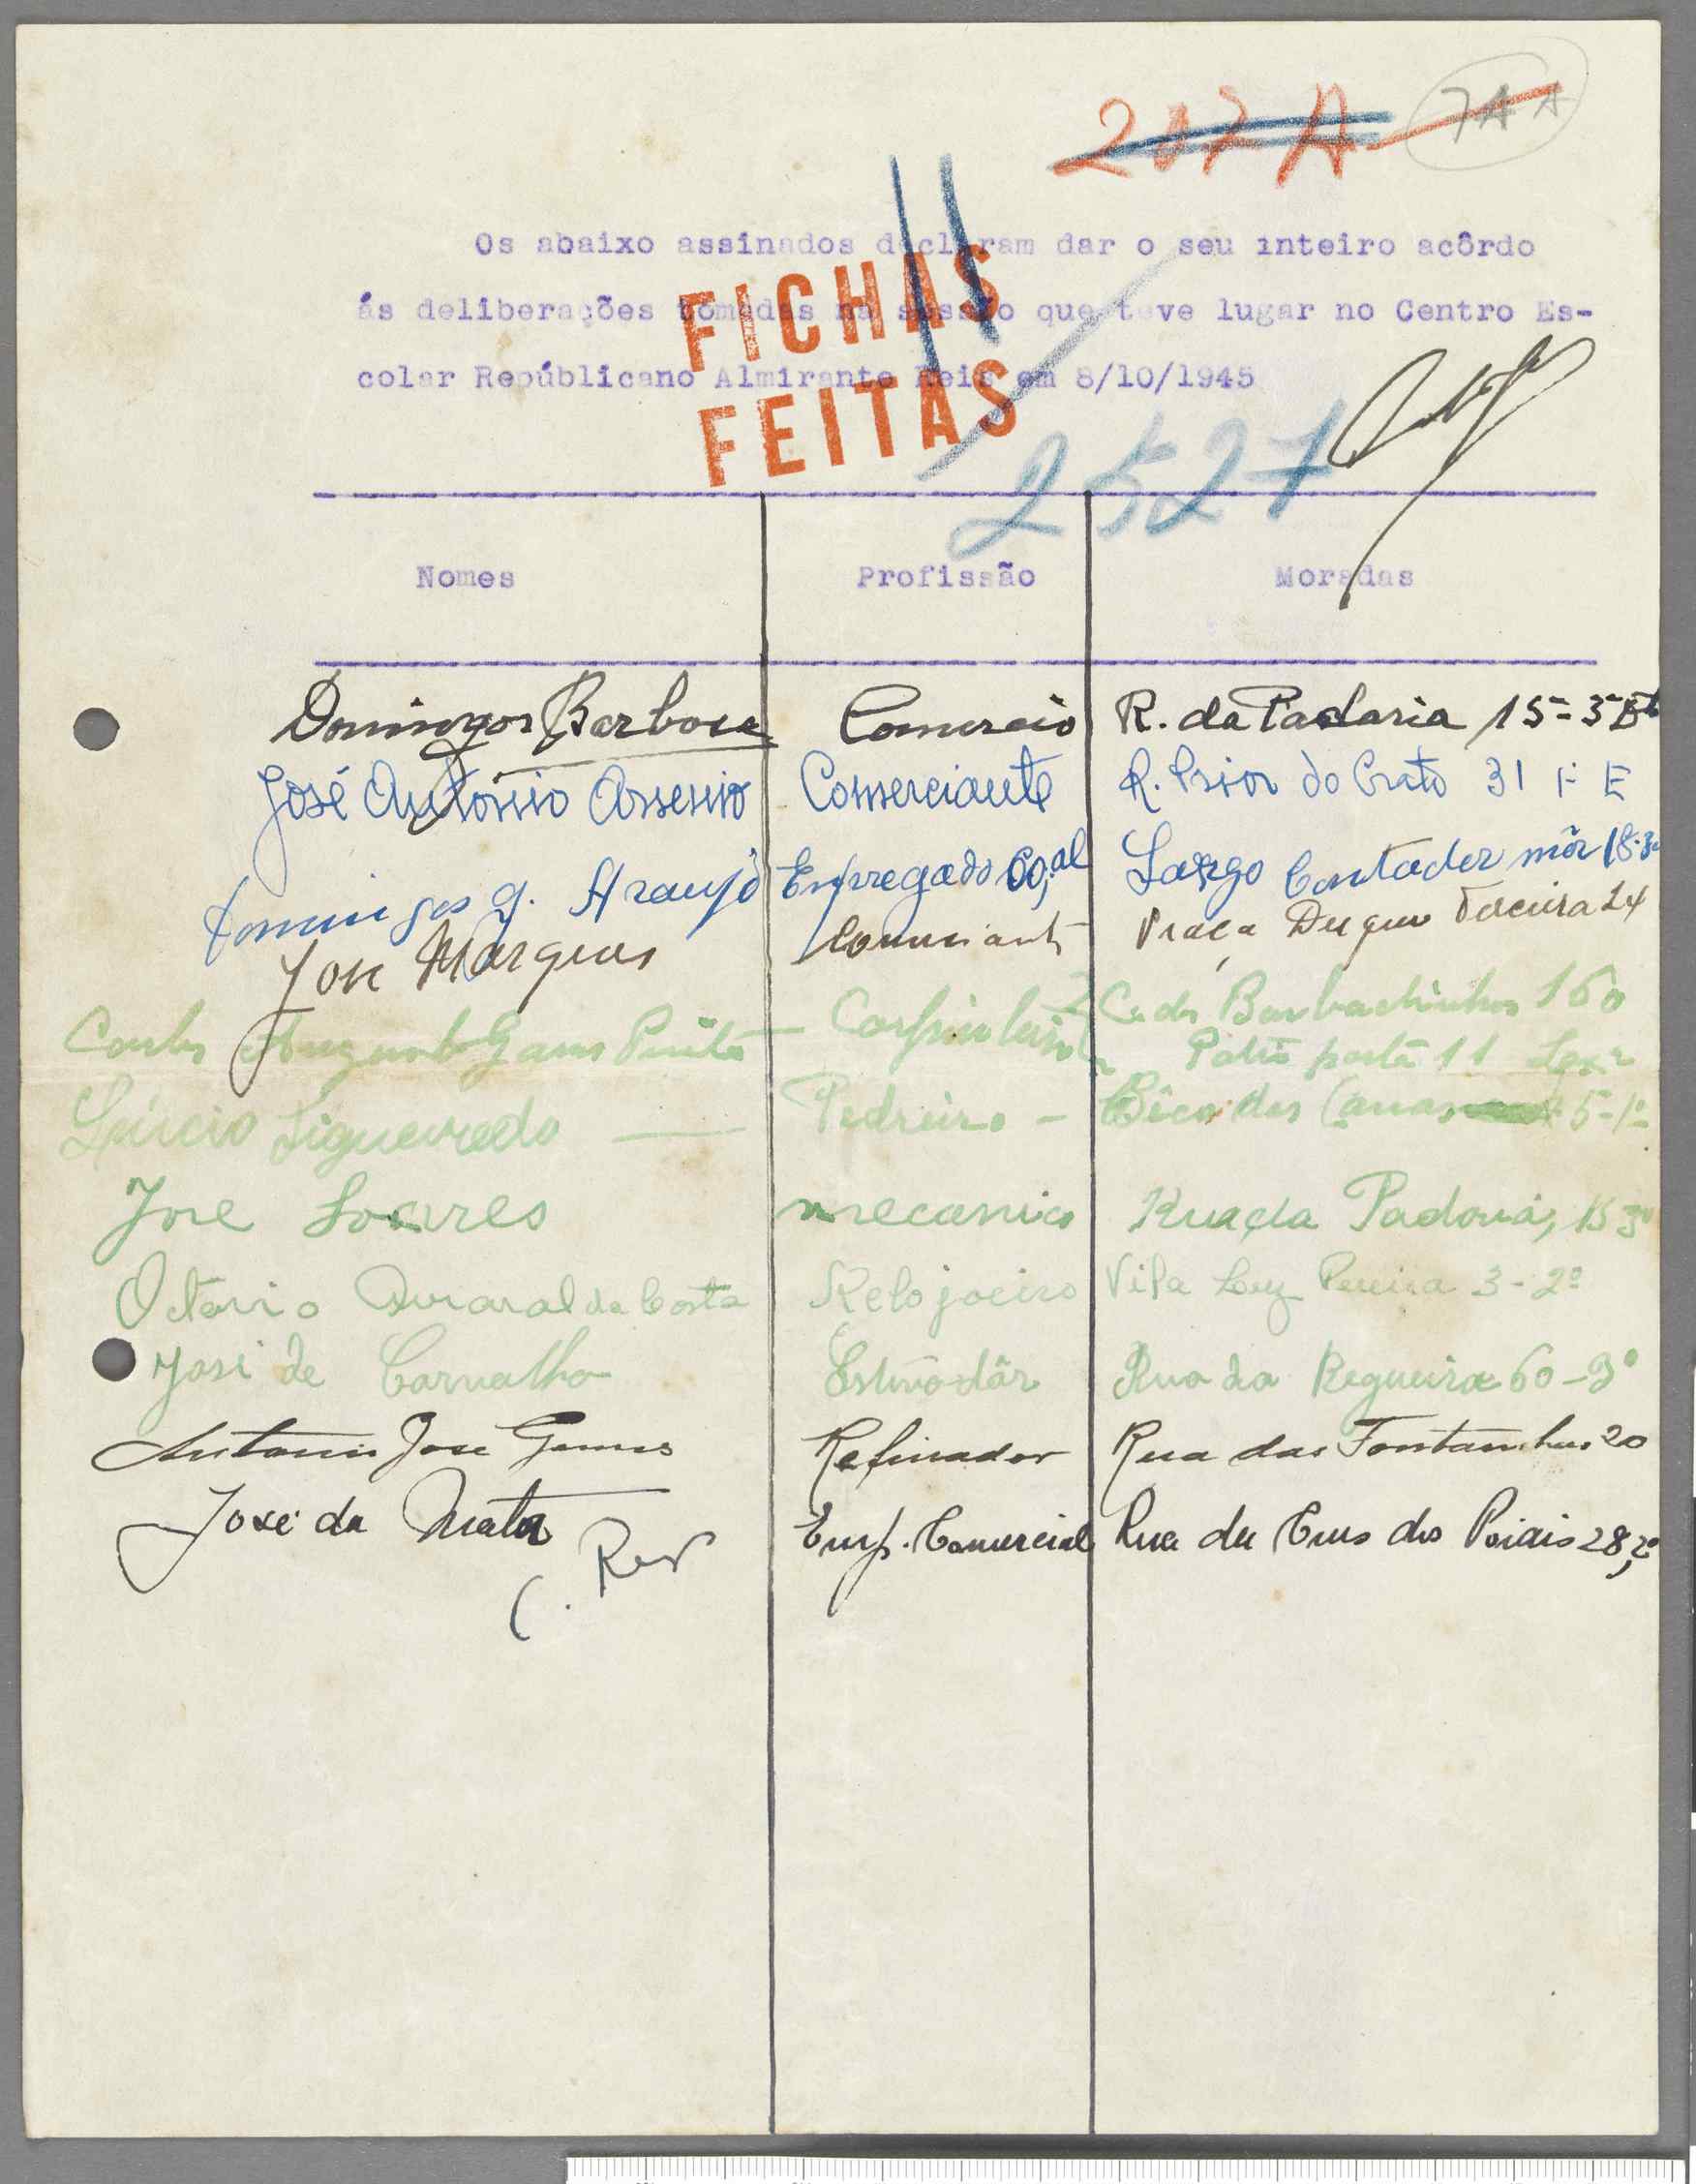 207 A 7A A
Os abaixo assinados declaram dar o seu inteiro acôrdo
ás deliberações tomadas na sessão que teve lugar no Centro Es-
colar Repúblicano Almirante Reis em 8/10/1945
FICHAS
FEITAS
2527
Nomes Profissão Moradas
Domingos Barbosa Comercio R. da Padaria 15-3º
José António Arsenio Comerciante R. Prior do Crato 31 F E
Domingos G. Araujo Empregado Co,al Largo Contador môr 18
José Marques Comerciante Praça Duque Terceira 24
Carlos Augusto Pinto Carpinteiro C. dos Barbadinhos 160
Patio porta 11
Lúcio Figueiredo Pedreiro - Bêco das Canas 5-1º
Jose Soares mecanico Rua da Padaria, 15 3º
Octavio Amaral da Costa Relojoeiro Vila Luz Pereira 3-2º
José de Carvalho Estivadôr Rua da Regueira 60-3º
Antonio Jose Gomes Refinador Rua das Fontainhas 20
José da Mata Emp. Comercial Rua da Crus dos Poiais 28, 2º